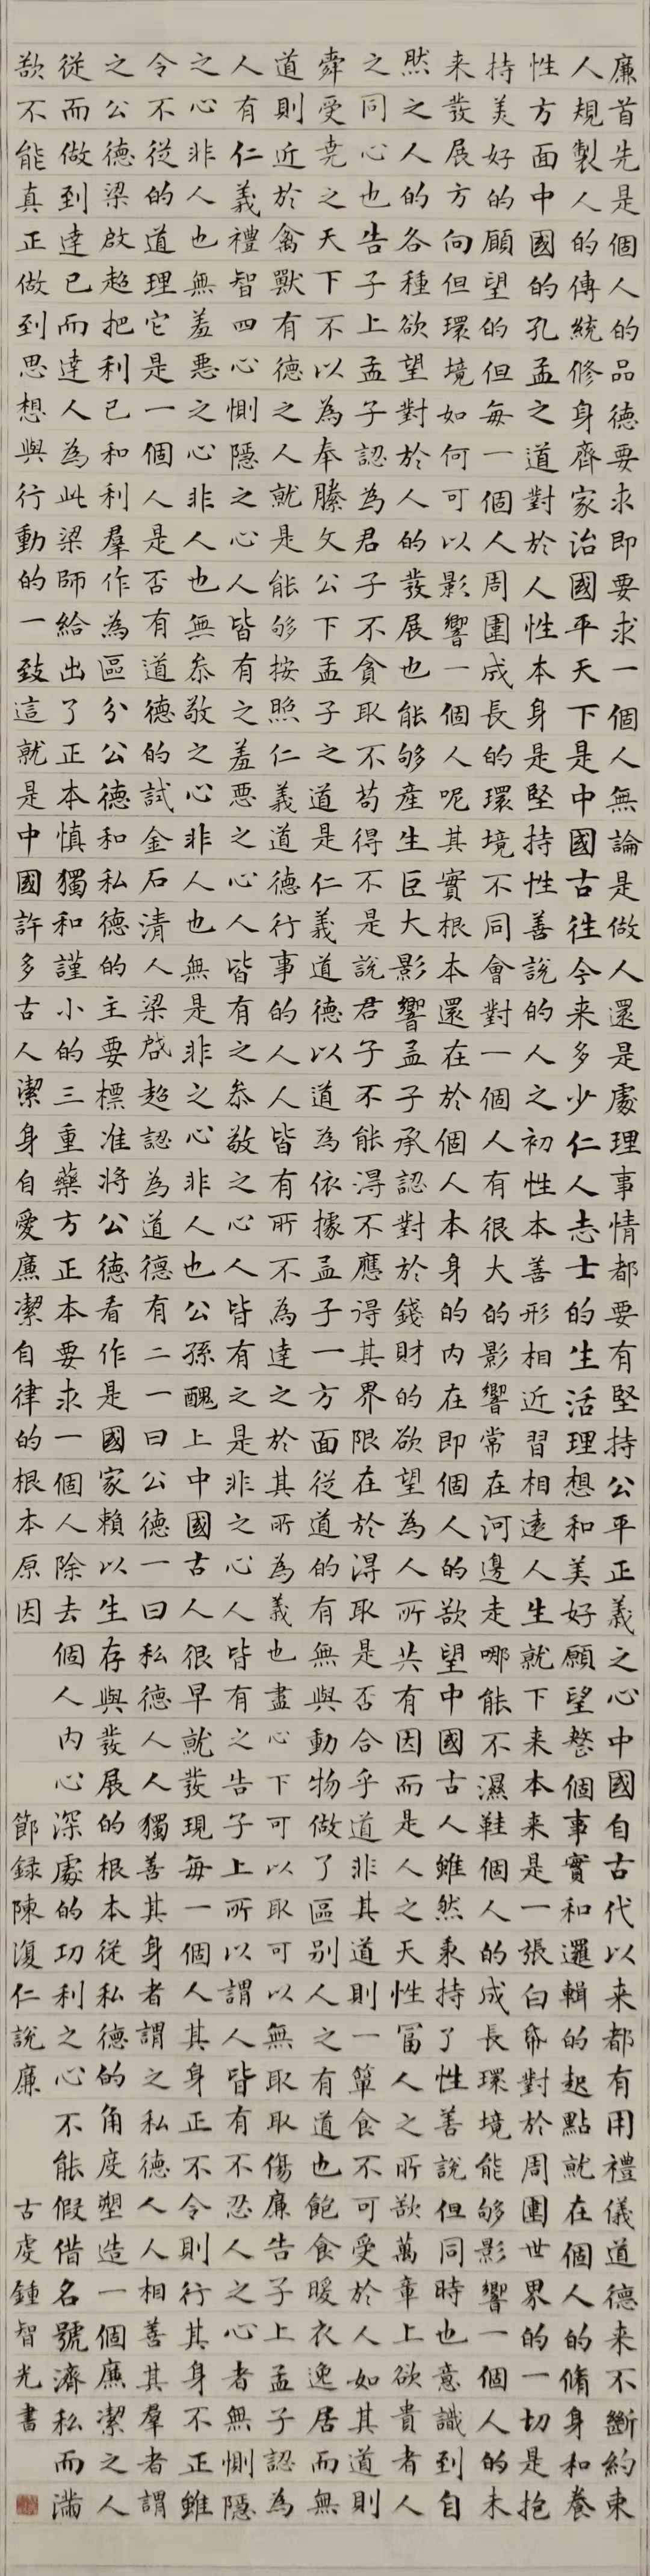 廉首先是個人的品德要求即要求一個人無論是做人還是處理事情都要有堅持公平正義之心中國自古代以来都有用禮儀道德来不斷約束
人規製人的傳統修身齊家治國平天下是中國古往今来多少仁人志士的生活理想和美好願望整個事實和邏輯的起點就在個人的脩身和養
性方面中國的孔孟之道對於人性本身是堅持性善說的人之初性本善形相近習相遠人生就下来本来是一張白帋對於周圍世界的一切是抱
持美好的願望的但每一個人周圍成長的環境不同會對一個人有很大的影響常在河邊走哪能不濕鞋個人的成長環境能够影響一個人的未
来發展方向但環境如何可以影響一個人呢其實根本還在於個人本身的内在即個人的欲望中國古人雖然秉持了性善說但同時也意識到自
然之人的各種欲望對於人的發展也能够産生巨大影響孟子承認對於錢財的欲望為人所共有因而是人之天性冨人之所欲萬章上欲貴者人
之同心也告子上孟子認為君子不貪取不苟得不是說君子不能得不應得其界限在於得取是否合乎道非其道則一簞食不可受於人如其道則
舜受堯之天下不以為奉滕文公下孟子之道是仁義道德以道為依據孟子一方面從道的有無與動物做了區别人之有道也飽食暖衣逸居而無
道則近於禽獸有德之人就是能够按照仁義道德行事的人人皆有所不為達之於其所為義也盡心下可以取可以無取取傷廉告子上孟子認為
人有仁義禮智四心惻隱之心人皆有之羞惡之心人皆有之恭敬之心人皆有之是非之心人皆有之告子上所以謂人皆有不忍人之心者無惻隱
之心非人也無羞惡之心非人也無恭敬之心非人也無是非之心非人也公孫醜上中國古人很早就發現每一個人其身正不令則行其身不正雖
令不從的道理它是一個人是否有道德的試金石清人梁啟超認為道德有二一曰公德一曰私德人人獨善其身者謂之私德人人相善其羣者謂
之公德梁啟超把利已和利羣作為區分公德和私德的主要標准將公德看作是國家賴以生存與發展的根本從私德的角度塑造一個廉潔之人
從而做到達已而達人為此梁師給出了正本慎獨和謹小的三重藥方正本要求一個人除去個人内心深處的功利之心不能假借名號濟私而滿
欲不能真正做到思想與行動的一致這就是中國許多古人潔身自愛廉潔自律的根本原因
節録陳復仁說廉
古虔鍾智光書